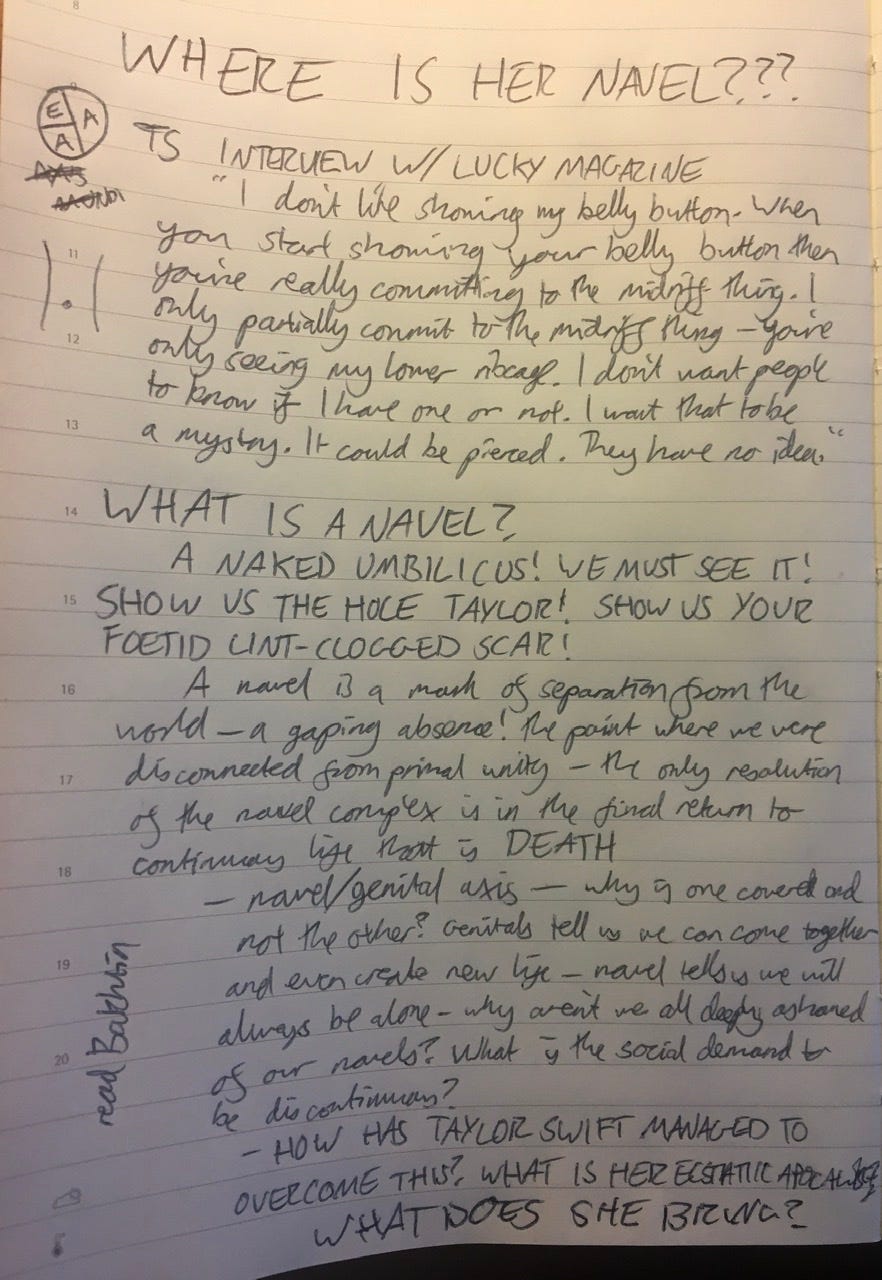 8
WHERE IS HER NAVEL???
E A A
TS INTERVIEW W/ LUCKY MAGAZINE
AXIS
MUNDI
"I don't like showing my belly button. When
you start showing your belly button then
11
you're really committing to the midriff thing. I
only partially commit to the midriff thing – you're
12
only seeing my lower ribcage. I don't want people
to know if I have one or not. I want that to be
13
a mystery. It could be pierced. They have no idea."
14
WHAT IS A NAVEL?
A NAKED UMBILICUS! WE MUST SEE IT!
15
SHOW US THE HOLE TAYLOR! SHOW US YOUR
FOETID LINT-CLOGGED SCAR!
16
A navel is a mark of separation from the
world – a gaping absence! the point where we were
17
disconnected from primal unity – the only resolution
of the navel complex is in the final return to
18
continuous life that is DEATH
– navel/genital axis – why is one covered and
not the other? Genitals tell us we can come together
19
and even create new life – navel tells us we will
always be alone – why aren't we all deeply ashamed
20
of our navels? What is the social demand to
be discontinuous?
read Bakhtin
– HOW HAS TAYLOR SWIFT MANAGED TO
OVERCOME THIS? WHAT IS HER ECSTATIC APOCALYPSE?
WHAT DOES SHE BRING?